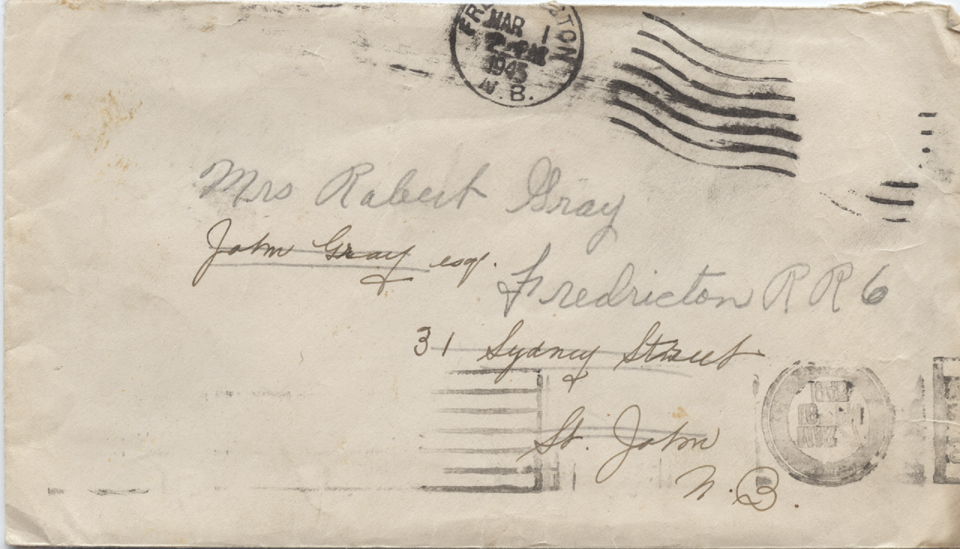 MAR 1
1943
N.B.
Mrs Robert Gray
John Gray esq.
Fredricton R R 6
31 Sydney Street
St. John
N. B.